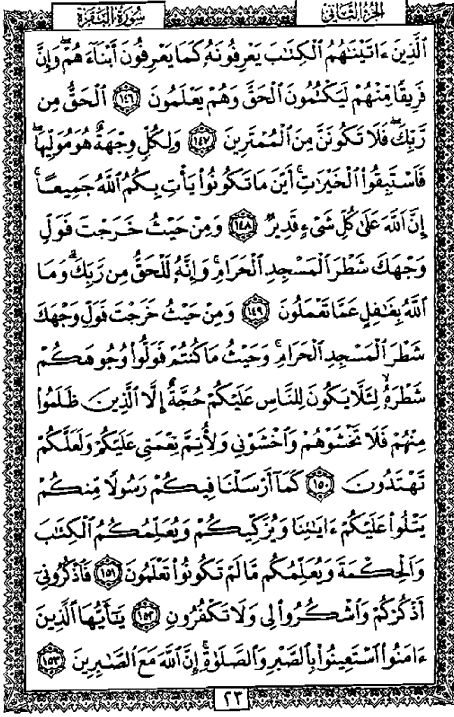 سُورَةُ البَقَرَةِ
الجزء الثاني
ٱلَّذِينَ ءَاتَيْنَٰهُمُ ٱلْكِتَٰبَ يَعْرِفُونَهُۥ كَمَا يَعْرِفُونَ أَبْنَآءَهُمْ ۖ وَإِنَّ
فَرِيقًا مِّنْهُمْ لَيَكْتُمُونَ ٱلْحَقَّ وَهُمْ يَعْلَمُونَ ١٤٦ ٱلْحَقُّ مِن
رَّبِّكَ ۖ فَلَا تَكُونَنَّ مِنَ ٱلْمُمْتَرِينَ ١٤٧ وَلِكُلٍّ وِجْهَةٌ هُوَ مُوَلِّيهَا ۖ
فَٱسْتَبِقُوا۟ ٱلْخَيْرَٰتِ ۚ أَيْنَ مَا تَكُونُوا۟ يَأْتِ بِكُمُ ٱللَّهُ جَمِيعًا ۚ
إِنَّ ٱللَّهَ عَلَىٰ كُلِّ شَىْءٍ قَدِيرٌ ١٤٨ وَمِنْ حَيْثُ خَرَجْتَ فَوَلِّ
وَجْهَكَ شَطْرَ ٱلْمَسْجِدِ ٱلْحَرَامِ ۖ وَإِنَّهُۥ لَلْحَقُّ مِن رَّبِّكَ ۗ وَمَا
ٱللَّهُ بِغَٰفِلٍ عَمَّا تَعْمَلُونَ ١٤٩ وَمِنْ حَيْثُ خَرَجْتَ فَوَلِّ وَجْهَكَ
شَطْرَ ٱلْمَسْجِدِ ٱلْحَرَامِ ۚ وَحَيْثُ مَا كُنتُمْ فَوَلُّوا۟ وُجُوهَكُمْ
شَطْرَهُۥ لِئَلَّا يَكُونَ لِلنَّاسِ عَلَيْكُمْ حُجَّةٌ إِلَّا ٱلَّذِينَ ظَلَمُوا۟
مِنْهُمْ فَلَا تَخْشَوْهُمْ وَٱخْشَوْنِى وَلِأُتِمَّ نِعْمَتِى عَلَيْكُمْ وَلَعَلَّكُمْ
تَهْتَدُونَ ١٥٠ كَمَآ أَرْسَلْنَا فِيكُمْ رَسُولًا مِّنكُمْ
يَتْلُوا۟ عَلَيْكُمْ ءَايَٰتِنَا وَيُزَكِّيكُمْ وَيُعَلِّمُكُمُ ٱلْكِتَٰبَ
وَٱلْحِكْمَةَ وَيُعَلِّمُكُم مَّا لَمْ تَكُونُوا۟ تَعْلَمُونَ ١٥١ فَٱذْكُرُونِىٓ
أَذْكُرْكُمْ وَٱشْكُرُوا۟ لِى وَلَا تَكْفُرُونِ ١٥٢ يَٰٓأَيُّهَا ٱلَّذِينَ
ءَامَنُوا۟ ٱسْتَعِينُوا۟ بِٱلصَّبْرِ وَٱلصَّلَوٰةِ ۚ إِنَّ ٱللَّهَ مَعَ ٱلصَّٰبِرِينَ ١٥٣
٢٣